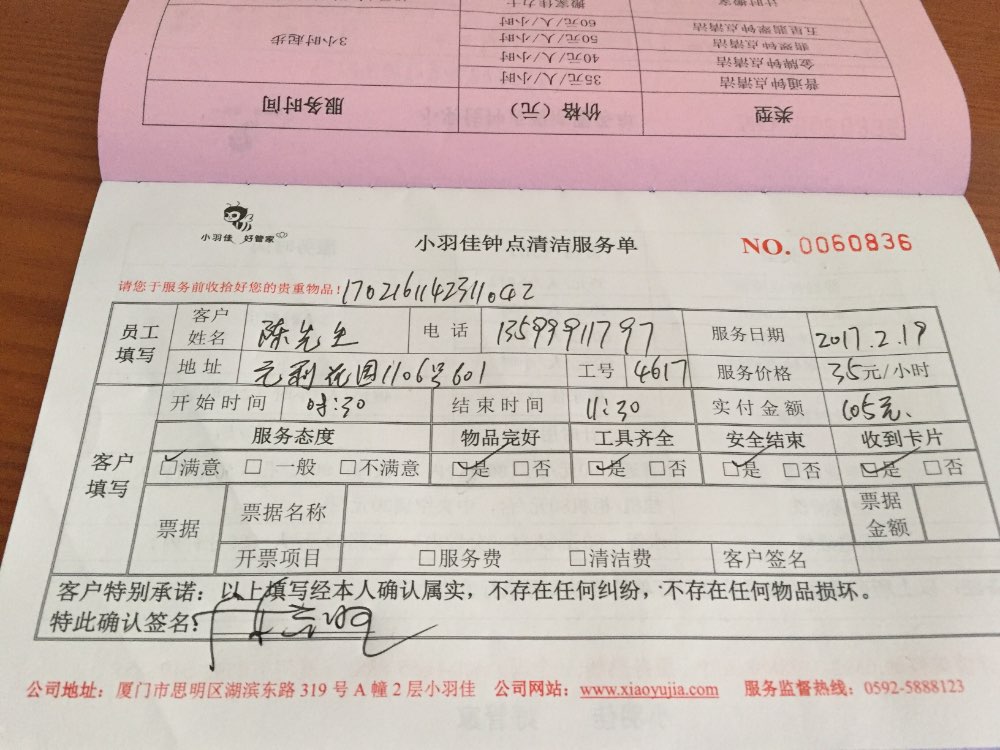 计时搬家 搬家佳力士
五星翡翠钟点清洁 60元/人/小时
翡翠钟点清洁 50元/人/小时 3小时起步
金牌钟点清洁 40元/人/小时
普通钟点清洁 35元/人/小时
类型 价格（元） 服务时间
小羽佳 好管家
小羽佳钟点清洁服务单
NO. 0060836
请您于服务前收拾好您的贵重物品! 170216114231042
员工填写 客户姓名 陈先生 电话 13599911797 服务日期 2017.2.19
地址 元利花园1106号601 工号 4617 服务价格 35元/小时
开始时间 08:30 结束时间 11:30 实付金额 105元.
客户填写 服务态度 物品完好 工具齐全 安全结束 收到卡片
□满意 □一般 □不满意 □是 □否 □是 □否 □是 □否 □是 □否
票据 票据名称 票据金额
开票项目 □服务费 □清洁费 客户签名
客户特别承诺：以上填写经本人确认属实，不存在任何纠纷，不存在任何物品损坏。
特此确认签名:
公司地址：厦门市思明区湖滨东路 319 号 A 幢 2 层小羽佳 公司网站：www.xiaoyujia.com 服务监督热线：0592-5888123